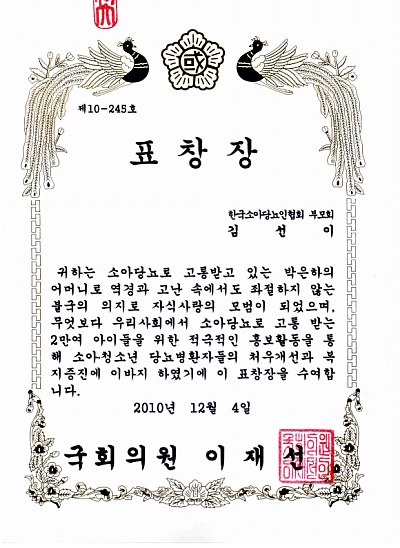 제10-245호
표 창 장
한국소아당뇨인협회 부모회
김 선 이
귀하는 소아당뇨로 고통받고 있는 박은하의
어머니로 역경과 고난 속에서도 좌절하지 않는
불굴의 의지로 자식사랑의 모범이 되었으며,
무엇보다 우리사회에서 소아당뇨로 고통 받는
2만여 아이들을 위한 적극적인 홍보활동을 통
해 소아청소년 당뇨병환자들의 처우개선과 복
지증진에 이바지 하였기에 이 표창장을 수여합
니다.
2010년 12월 4일
국회의원 이 재 선